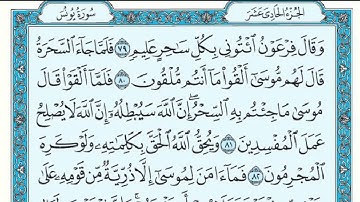 الجزء الحادى عشر
سورة يونس
وَقَالَ فِرْعَوْنُ ٱئْتُونِى بِكُلِّ سَٰحِرٍ عَلِيمٍ ٧٩ فَلَمَّا جَآءَ ٱلسَّحَرَةُ
قَالَ لَهُم مُّوسَىٰٓ أَلْقُوا۟ مَآ أَنتُم مُّلْقُونَ ٨٠ فَلَمَّآ أَلْقَوْا۟ قَالَ
مُوسَىٰ مَا جِئْتُم بِهِ ٱلسِّحْرُ إِنَّ ٱللَّهَ سَيُبْطِلُهُۥٓ إِنَّ ٱللَّهَ لَا يُصْلِحُ
عَمَلَ ٱلْمُفْسِدِينَ ٨١ وَيُحِقُّ ٱللَّهُ ٱلْحَقَّ بِكَلِمَٰتِهِۦ وَلَوْ كَرِهَ
ٱلْمُجْرِمُونَ ٨٢ فَمَآ ءَامَنَ لِمُوسَىٰٓ إِلَّا ذُرِّيَّةٌ مِّن قَوْمِهِۦ عَلَىٰ